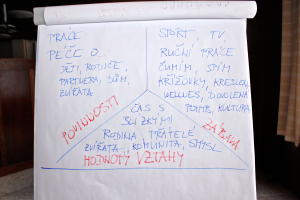 PRÁCE
PÉČE O...
DĚTI, RODIČE,
PARTNERA, DŮM,
ZVÍŘATA
SPORT, TV,
RUČNÍ PRÁCE
ČUMÍM, SPÍM
KŘÍŽOVKY, KRESLENÍ
WELLNES, DOVOLENÁ
KULTURA
POVINNOSTI
ZÁBAVA
ČAS S
BLÍZKÝMI
RODINA, PŘÁTELÉ
ZVÍŘATA, KOMUNITA, SMYSL
HODNOTY VZTAHY